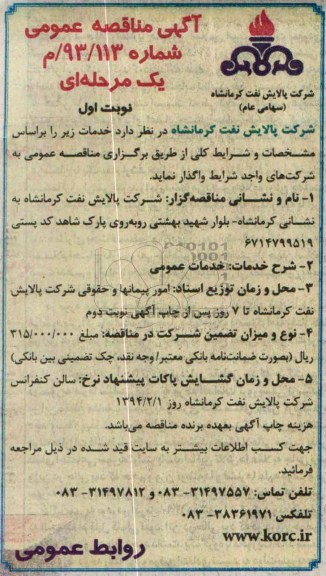 آگهی مناقصه عمومی
شماره ۹۳/۱۱۳/م
یک مرحله‌ای
نوبت اول
شرکت پالایش نفت کرمانشاه
(سهامی عام)
شرکت پالایش نفت کرمانشاه در نظر دارد خدمات زیر را براساس
مشخصات و شرایط کلی از طریق برگزاری مناقصه عمومی به
شرکت‌های واجد شرایط واگذار نماید.
۱- نام و نشانی مناقصه‌گزار: شرکت پالایش نفت کرمانشاه به
نشانی کرمانشاه- بلوار شهید بهشتی روبه‌روی پارک شاهد کد پستی
۶۷۱۴۷۹۹۵۱۹
۲- شرح خدمات: خدمات عمومی
۳- محل و زمان توزیع اسناد: امور پیمانها و حقوقی شرکت پالایش
نفت کرمانشاه تا ۷ روز پس از چاپ آگهی نوبت دوم
۴- نوع و میزان تضمین شرکت در مناقصه: مبلغ ۳۱۵/۰۰۰/۰۰۰
ریال (بصورت ضمانت‌نامه بانکی معتبر/ وجه نقد، چک تضمینی بین بانکی)
۵- محل و زمان گشایش پاکات پیشنهاد نرخ: سالن کنفرانس
شرکت پالایش نفت کرمانشاه روز ۱۳۹۴/۲/۱
هزینه چاپ آگهی بعهده برنده مناقصه می‌باشد.
جهت کسب اطلاعات بیشتر به سایت قید شده در ذیل مراجعه
فرمائید.
تلفن تماس: ۳۱۴۹۷۵۵۷- ۰۸۳ و ۳۱۴۹۷۸۱۲- ۰۸۳
تلفکس ۳۸۳۶۱۹۷۱- ۰۸۳
www.korc.ir
روابط عمومی